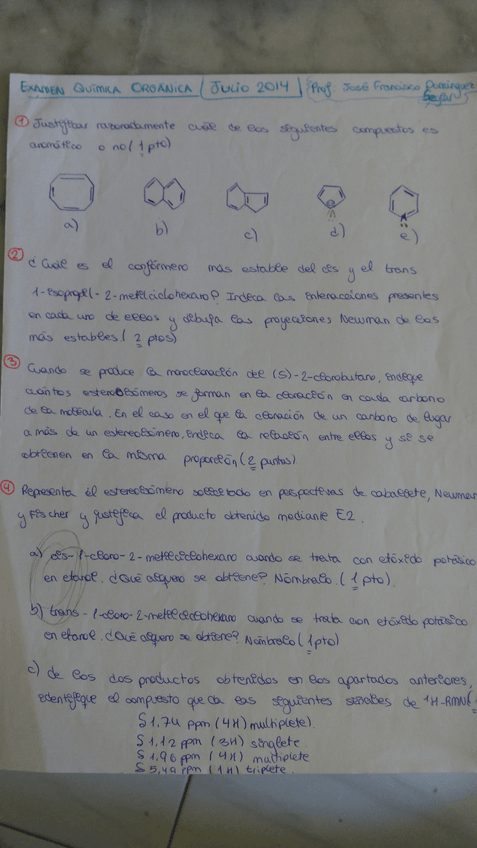 EXAMEN QUÍMICA ORGÁNICA / JULIO 2014 / Prof José Francisco Domínguez
① Justificar razonadamente cuál de los siguientes compuestos es
aromático o no (1 pto)
a) b) c) d) e)
② ¿Cuál es el confórmero más estable del cis y el trans
1-isopropil-2-metilciclohexano? Indica las interacciones presentes
en cada uno de ellos y dibuja las proyecciones Newman de los
más estables (2 ptos)
③ Cuando se produce la monocloración del (S)-2-clorobutano, indique
cuántos estereoisómeros se forman en la cloración en cada carbono
de la molécula. En el caso en el que la cloración de un carbono de lugar
a más de un estereoisómero, indica la relación entre ellos y si se
obtienen en la misma proporción (2 puntos)
④ Representa el estereoisómero solicitado en perspectivas de caballete, Newman
y Fischer y justifica el producto obtenido mediante E2.
a) cis-1-cloro-2-metilciclohexano cuando se trata con etóxido potásico
en etanol. ¿Qué alqueno se obtiene? Nómbralo. (1 pto)
b) trans-1-cloro-2-metilciclohexano cuando se trata con etóxido potásico
en etanol. ¿Qué alqueno se obtiene? Nómbralo (1 pto)
c) de los dos productos obtenidos en los apartados anteriores,
identifique el compuesto que da las siguientes señales de ¹H-RMN
δ 1,74 ppm (4H) multiplete).
δ 1,12 ppm (3H) singlete
δ 1,96 ppm (4H) multiplete
δ 5,49 ppm (1H) triplete.